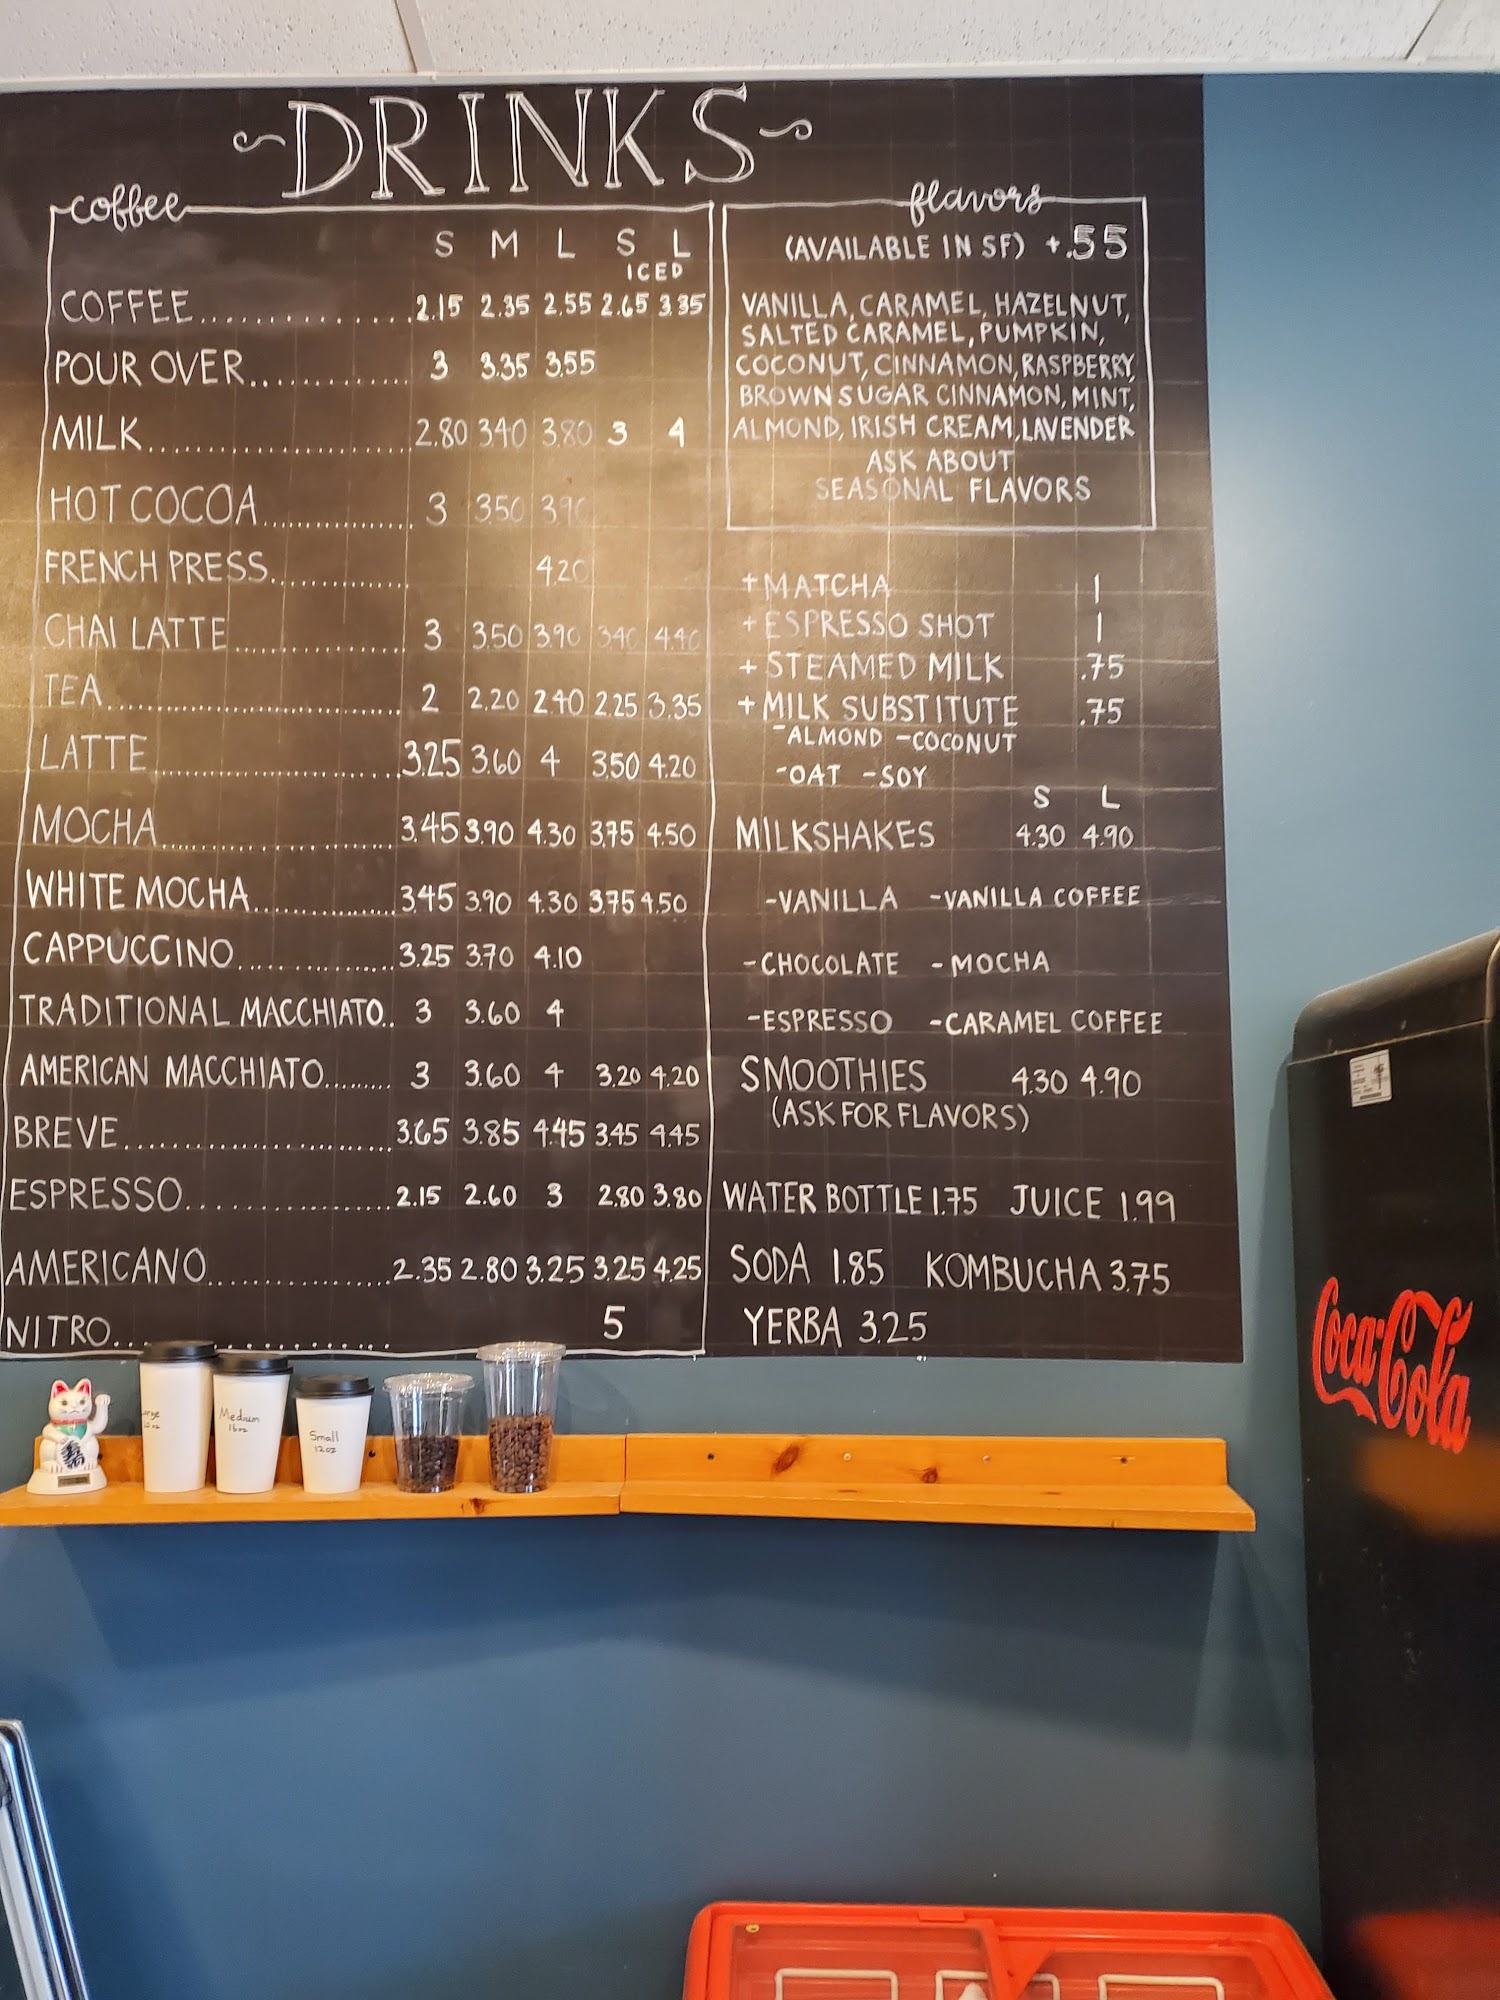 DRINKS
coffee
S M L S L
ICED
COFFEE.............. 2.15 2.35 2.55 2.65 3.35
POUR OVER............. 3 3.35 3.55
MILK...................... 2.80 3.40 3.80 3 4
HOT COCOA................ 3 3.50 3.90
FRENCH PRESS............... 4.20
CHAI LATTE.................. 3 3.50 3.90 3.40 4.40
TEA................................ 2 2.20 2.40 2.25 3.35
LATTE............................ 3.25 3.60 4 3.50 4.20
MOCHA......................... 3.45 3.90 4.30 3.75 4.50
WHITE MOCHA................ 3.45 3.90 4.30 3.75 4.50
CAPPUCCINO................ 3.25 3.70 4.10
TRADITIONAL MACCHIATO.. 3 3.60 4
AMERICAN MACCHIATO......... 3 3.60 4 3.20 4.20
BREVE........................... 3.65 3.85 4.45 3.45 4.45
ESPRESSO................... 2.15 2.60 3 2.80 3.80
AMERICANO................ 2.35 2.80 3.25 3.25 4.25
NITRO.................. 5
flavors
(AVAILABLE IN SF) +.55
VANILLA, CARAMEL, HAZELNUT,
SALTED CARAMEL, PUMPKIN,
COCONUT, CINNAMON, RASPBERRY,
BROWN SUGAR CINNAMON, MINT,
ALMOND, IRISH CREAM, LAVENDER
ASK ABOUT
SEASONAL FLAVORS
+ MATCHA 1
+ ESPRESSO SHOT 1
+ STEAMED MILK .75
+ MILK SUBSTITUTE .75
-ALMOND -COCONUT
-OAT -SOY
S L
MILKSHAKES 4.30 4.90
-VANILLA -VANILLA COFFEE
-CHOCOLATE -MOCHA
-ESPRESSO -CARAMEL COFFEE
SMOOTHIES 4.30 4.90
(ASK FOR FLAVORS)
WATER BOTTLE 1.75 JUICE 1.99
SODA 1.85 KOMBUCHA 3.75
YERBA 3.25
Medium
16oz
Small
12oz
Coca-Cola